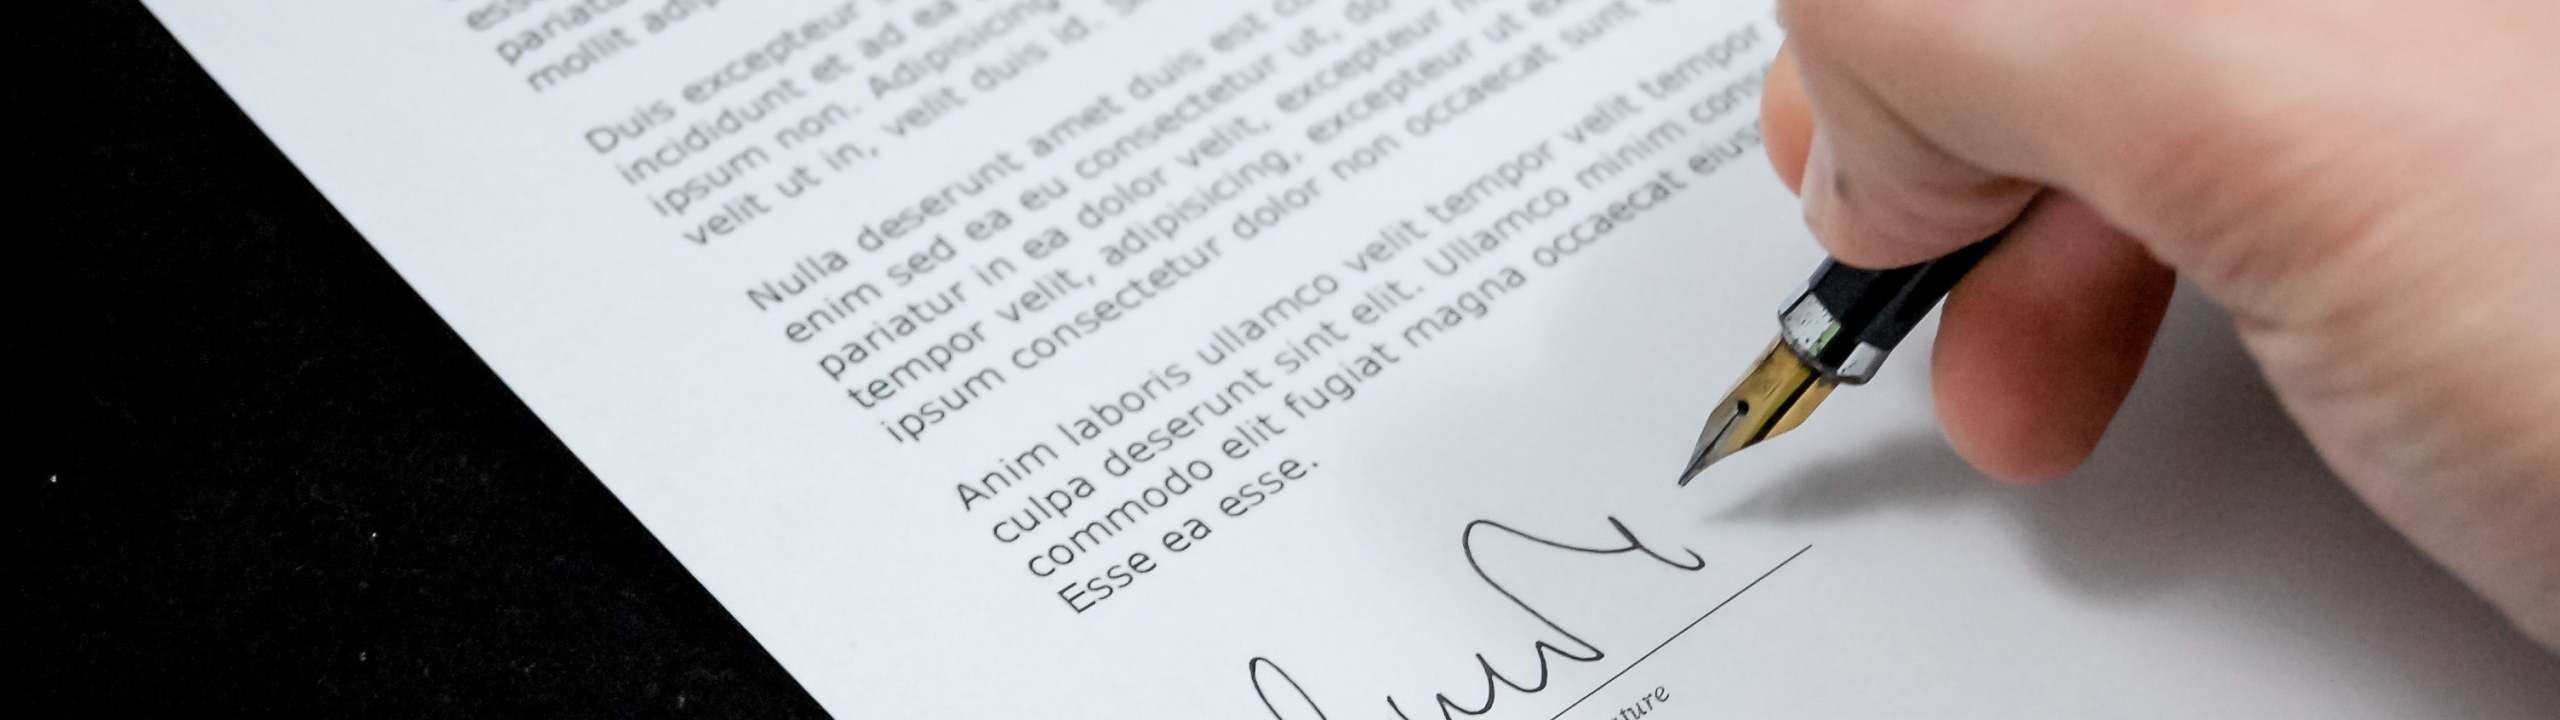 mollit
Duis excepteur
incididunt et ad ea
ipsum non. Adipisicing
velit ut in, velit duis id.
Nulla deserunt amet duis est
enim sed ea eu consectetur ut, do
pariatur in ea dolor velit, excepteur
tempor velit, adipisicing, excepteur ut
ipsum consectetur dolor non occaecat sunt
Anim laboris ullamco velit tempor velit tempor
culpa deserunt sint elit. Ullamco minim
commodo elit fugiat magna occaecat
Esse ea esse.